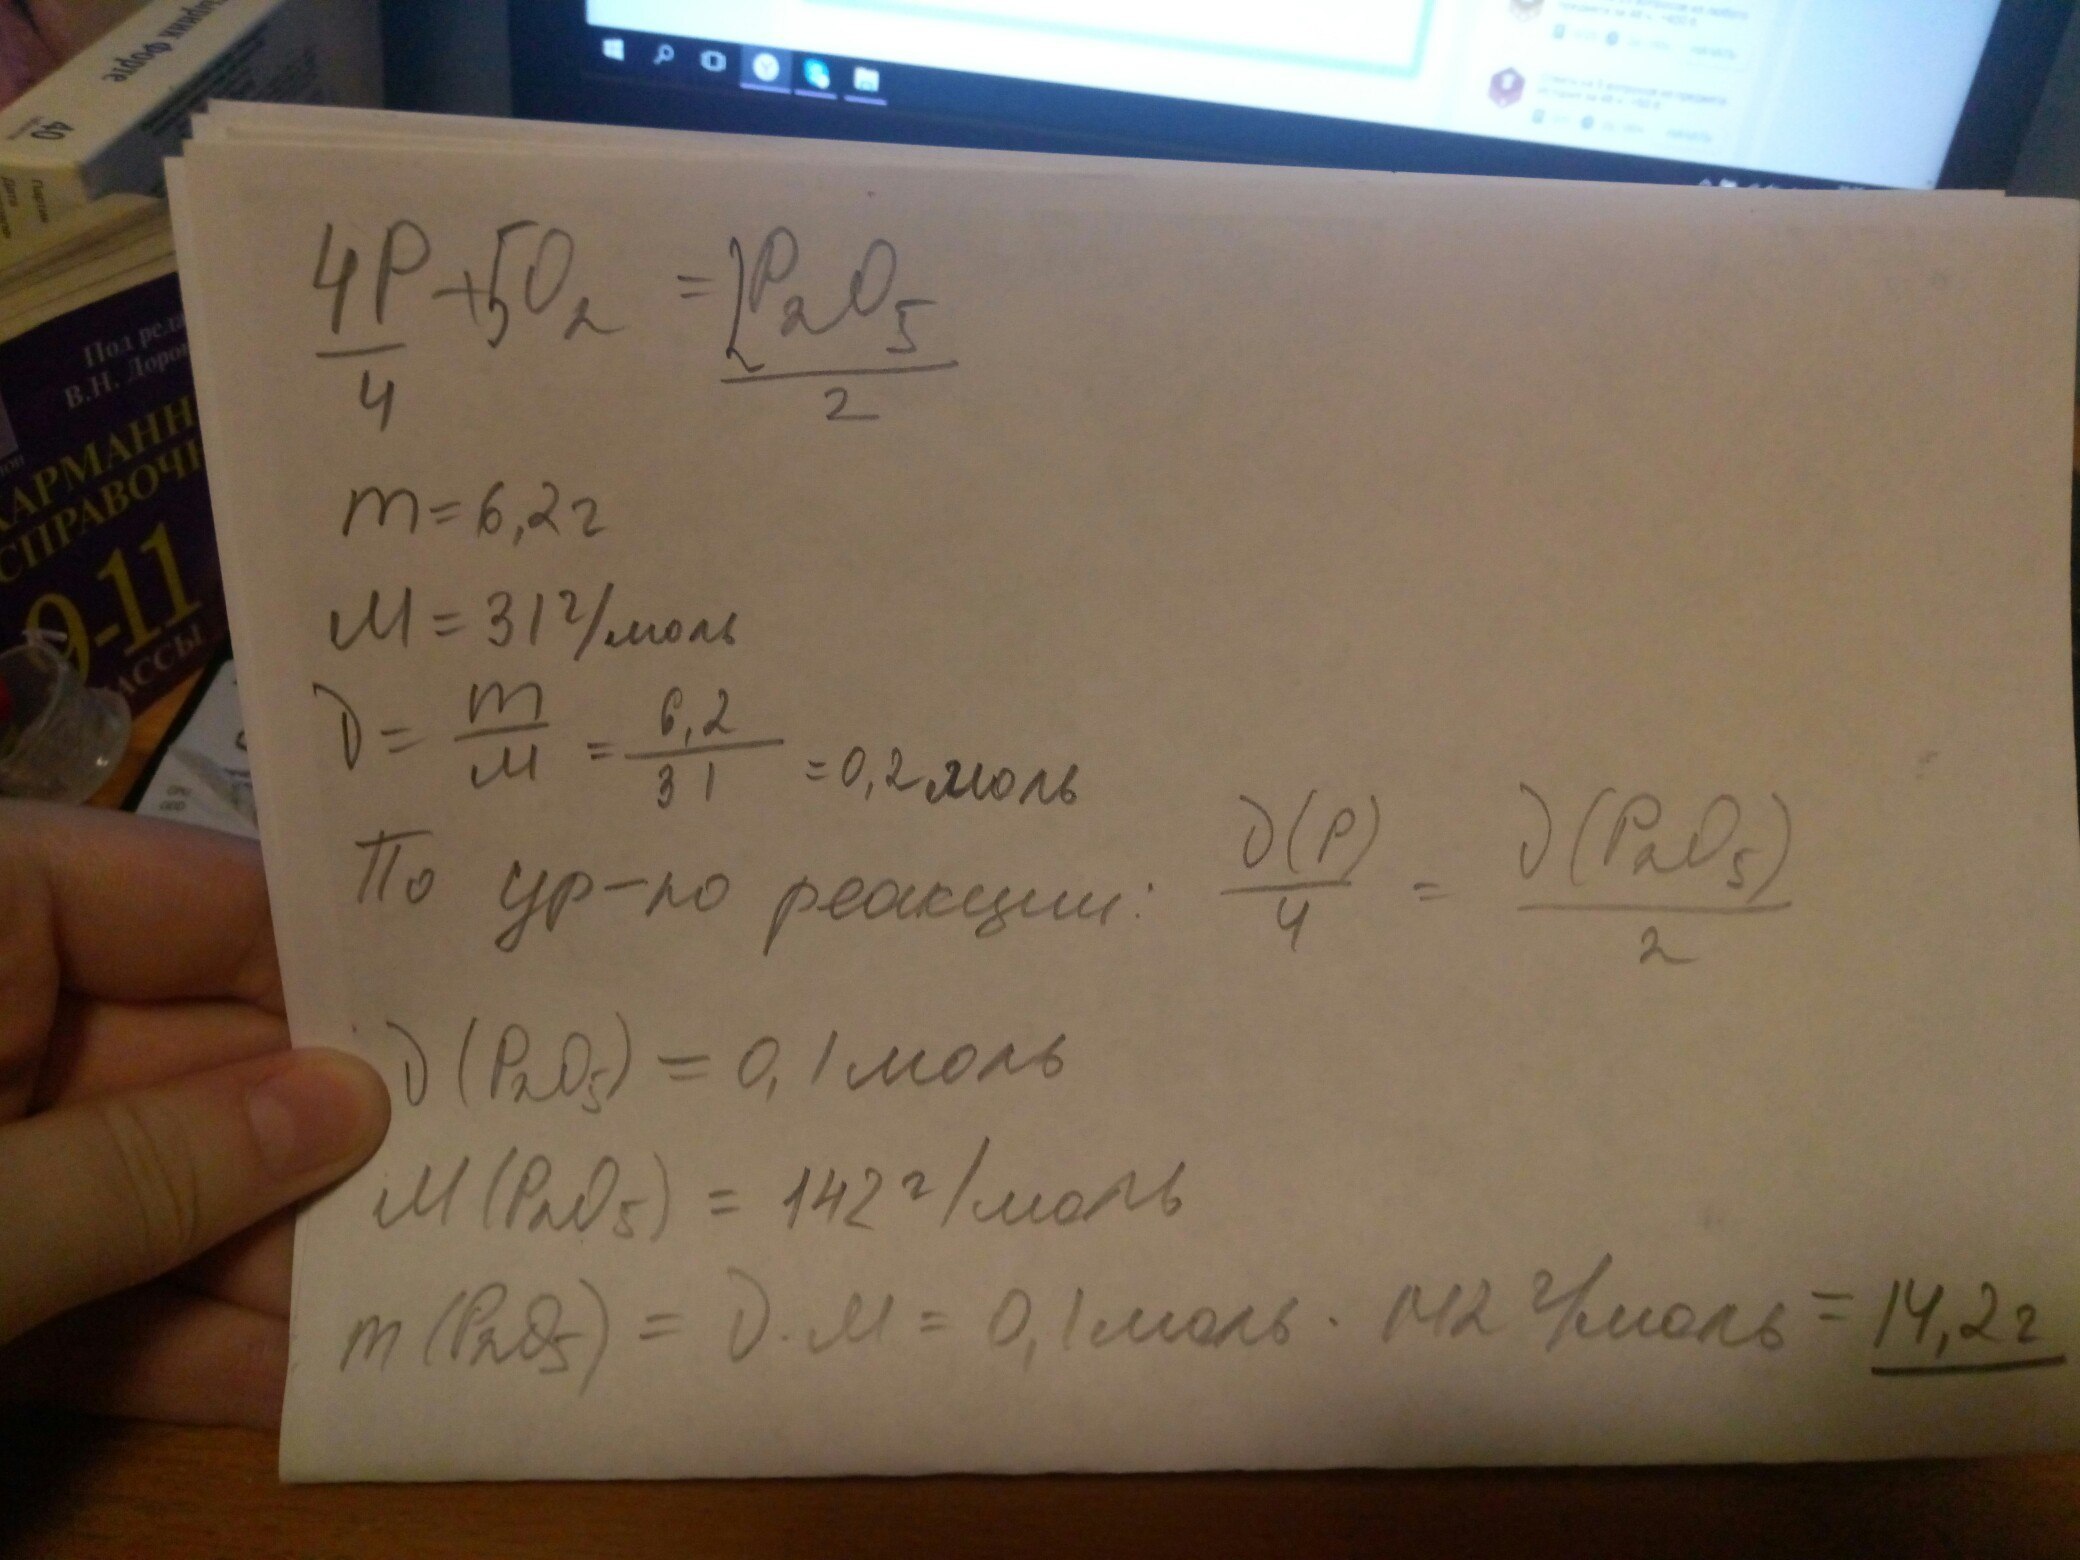 40
Под реда
В.Н. Доро
КАРМАНН
СПРАВОЧН
9-11
АССЫ
4P + 5O₂ = 2P₂O₅
4 2
m = 6,2 г
M = 31 г/моль
ν = m/M = 6,2/31 = 0,2 моль
По ур-ю реакции: ν(P)/4 = ν(P₂O₅)/2
ν(P₂O₅) = 0,1 моль
M(P₂O₅) = 142 г/моль
m(P₂O₅) = ν · M = 0,1 моль · 142 г/моль = 14,2 г